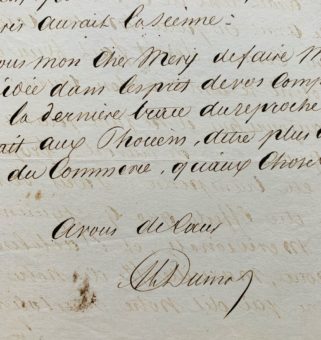 ris aurait la sienne.
vous mon cher Mery de faire
idée dans l'esprit de vos comp
la dernière du reproche
ait aux Phocéens, d'être plus
du Commerce, qu'aux chose
a vous de cœur